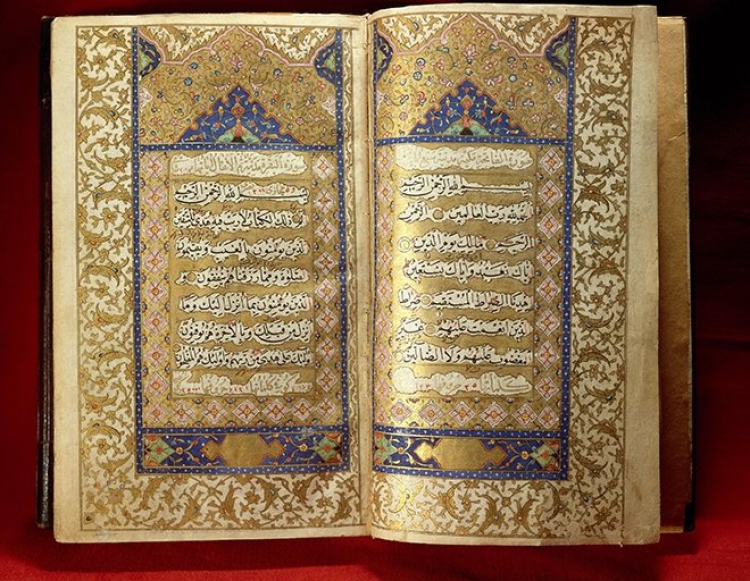 بسم الله الرحمن الرحيم
الحمد لله رب العالمين الرحمن
الرحيم مالك يوم الدين
اياك نعبد واياك نستعين
اهدنا الصراط المستقيم صراط
الذين انعمت عليهم غير
المغضوب عليهم ولا الضالين
بسم الله الرحمن الرحيم
الم ذلك الكتاب لا ريب فيه هدى للمتقين
الذين يؤمنون بالغيب ويقيمون
الصلوة ومما رزقناهم ينفقون
والذين يؤمنون بما انزل اليك وما
انزل من قبلك وبالاخرة هم يوقنون
اولئك على هدى من ربهم واولئك هم المفلحون